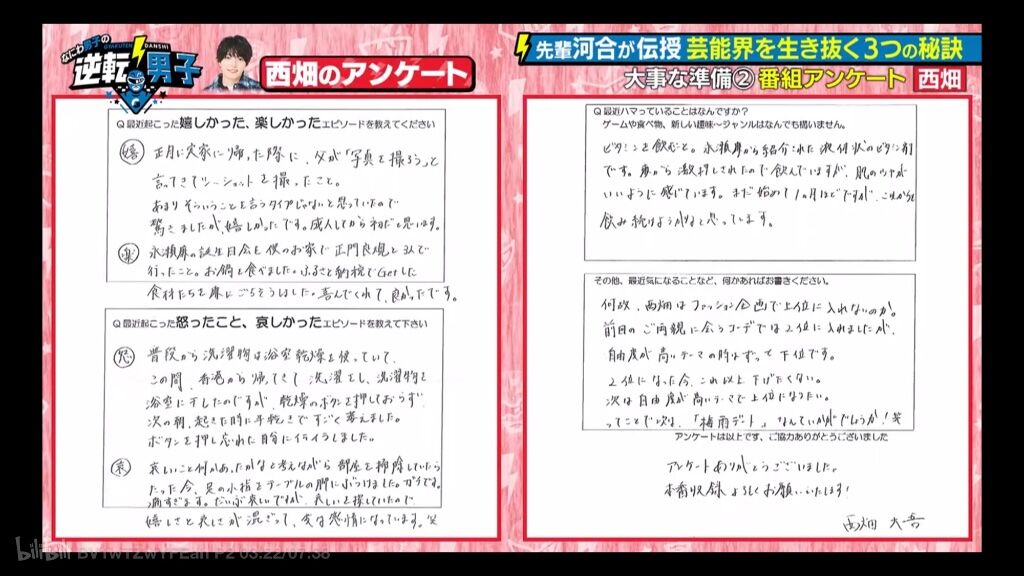 なにわ男子の
GYAKUTEN DANSHI
逆転男子
西畑のアンケート
先輩河合が伝授 芸能界を生き抜く3つの秘訣
大事な準備② 番組アンケート 西畑
Q 最近起こった嬉しかった、楽しかったエピソードを教えてください
嬉 正月に実家に帰った際に、父が「写真を撮ろう」と
言ってきてツーショットを撮ったこと。
あまりそういうことを言うタイプじゃないと思っていたので
驚きましたが、嬉しかったです。成人してから初だと思います。
楽 永瀬廉の誕生日会を僕のお家で正門良規と3人で
行ったこと。お鍋を食べました。ふるさと納税でGetした
食材たちを廉にごちそうしました。喜んでくれて、良かったです。
Q 最近起こった怒ったこと、哀しかったエピソードを教えて下さい
怒 普段から洗濯物は浴室乾燥を使っていて、
この間、香港から帰ってきて洗濯をし、洗濯物を
浴室に干したのですが、乾燥のボタンを押しておらず、
次の朝、起きた時に半乾きですごく萎えました。
ボタンを押し忘れた自分にイライラしました。
哀 哀しいこと何かあったかなと考えながら部屋を掃除していたら
たった今、足の小指をテーブルの脚にぶつけました。ガチです。
痛すぎます。だいぶ哀しいですが、哀しいを探していたので
嬉しさと哀しさが混ざって、変な感情になっています。笑
Q 最近ハマっていることはなんですか?
ゲームや食べ物、新しい趣味~ジャンルはなんでも構いません。
ビタミンを飲むこと。永瀬廉から紹介された液体状のビタミン剤
です。廉から激押しされたので飲んでいますが、肌のツヤが
いいように感じています。まだ始めて1ヵ月ほどですが、これからも
飲み続けようかなと思っています。
その他、最近気になることなど、何かあればお書きください。
何故、西畑はファッション企画で上位に入れないのか。
前回のご両親に会うコーデでは2位に入れましたが、
自由度が高いテーマの時はずっと下位です。
2位になった今、これ以上下げたくない。
次は自由度が高いテーマで上位になりたい。
ってことで次は、「梅雨デート」なんていかがでしょうか!笑
アンケートは以上です、ご協力ありがとうございました
アンケートありがとうございました。
本番収録よろしくお願いいたします!
西畑 大吾
bilibili